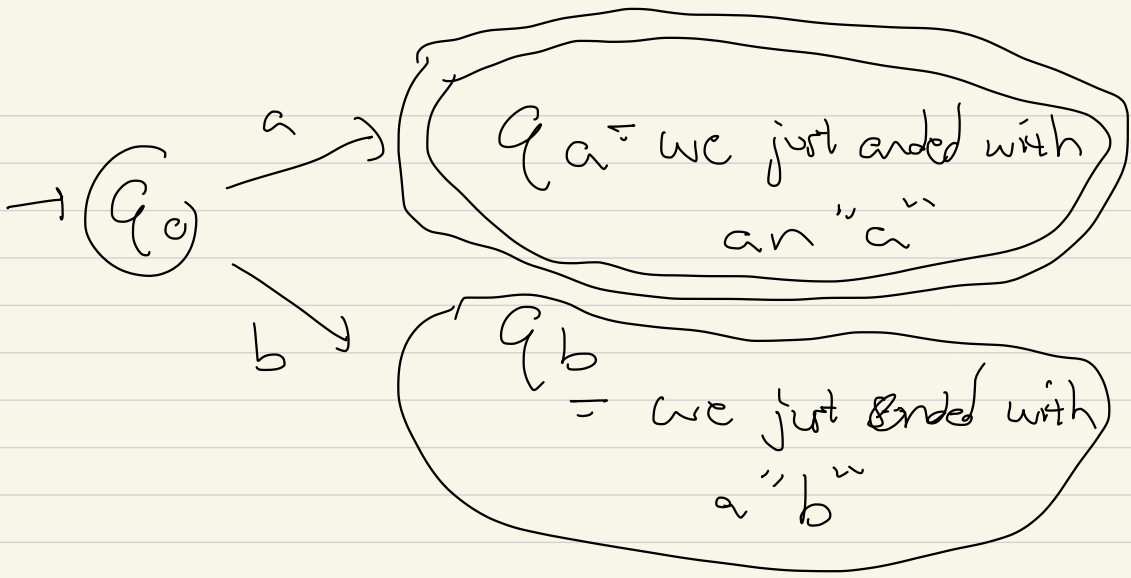 a
q0
qa = we just ended with
an "a"
b
qb
= we just ended with
a "b"